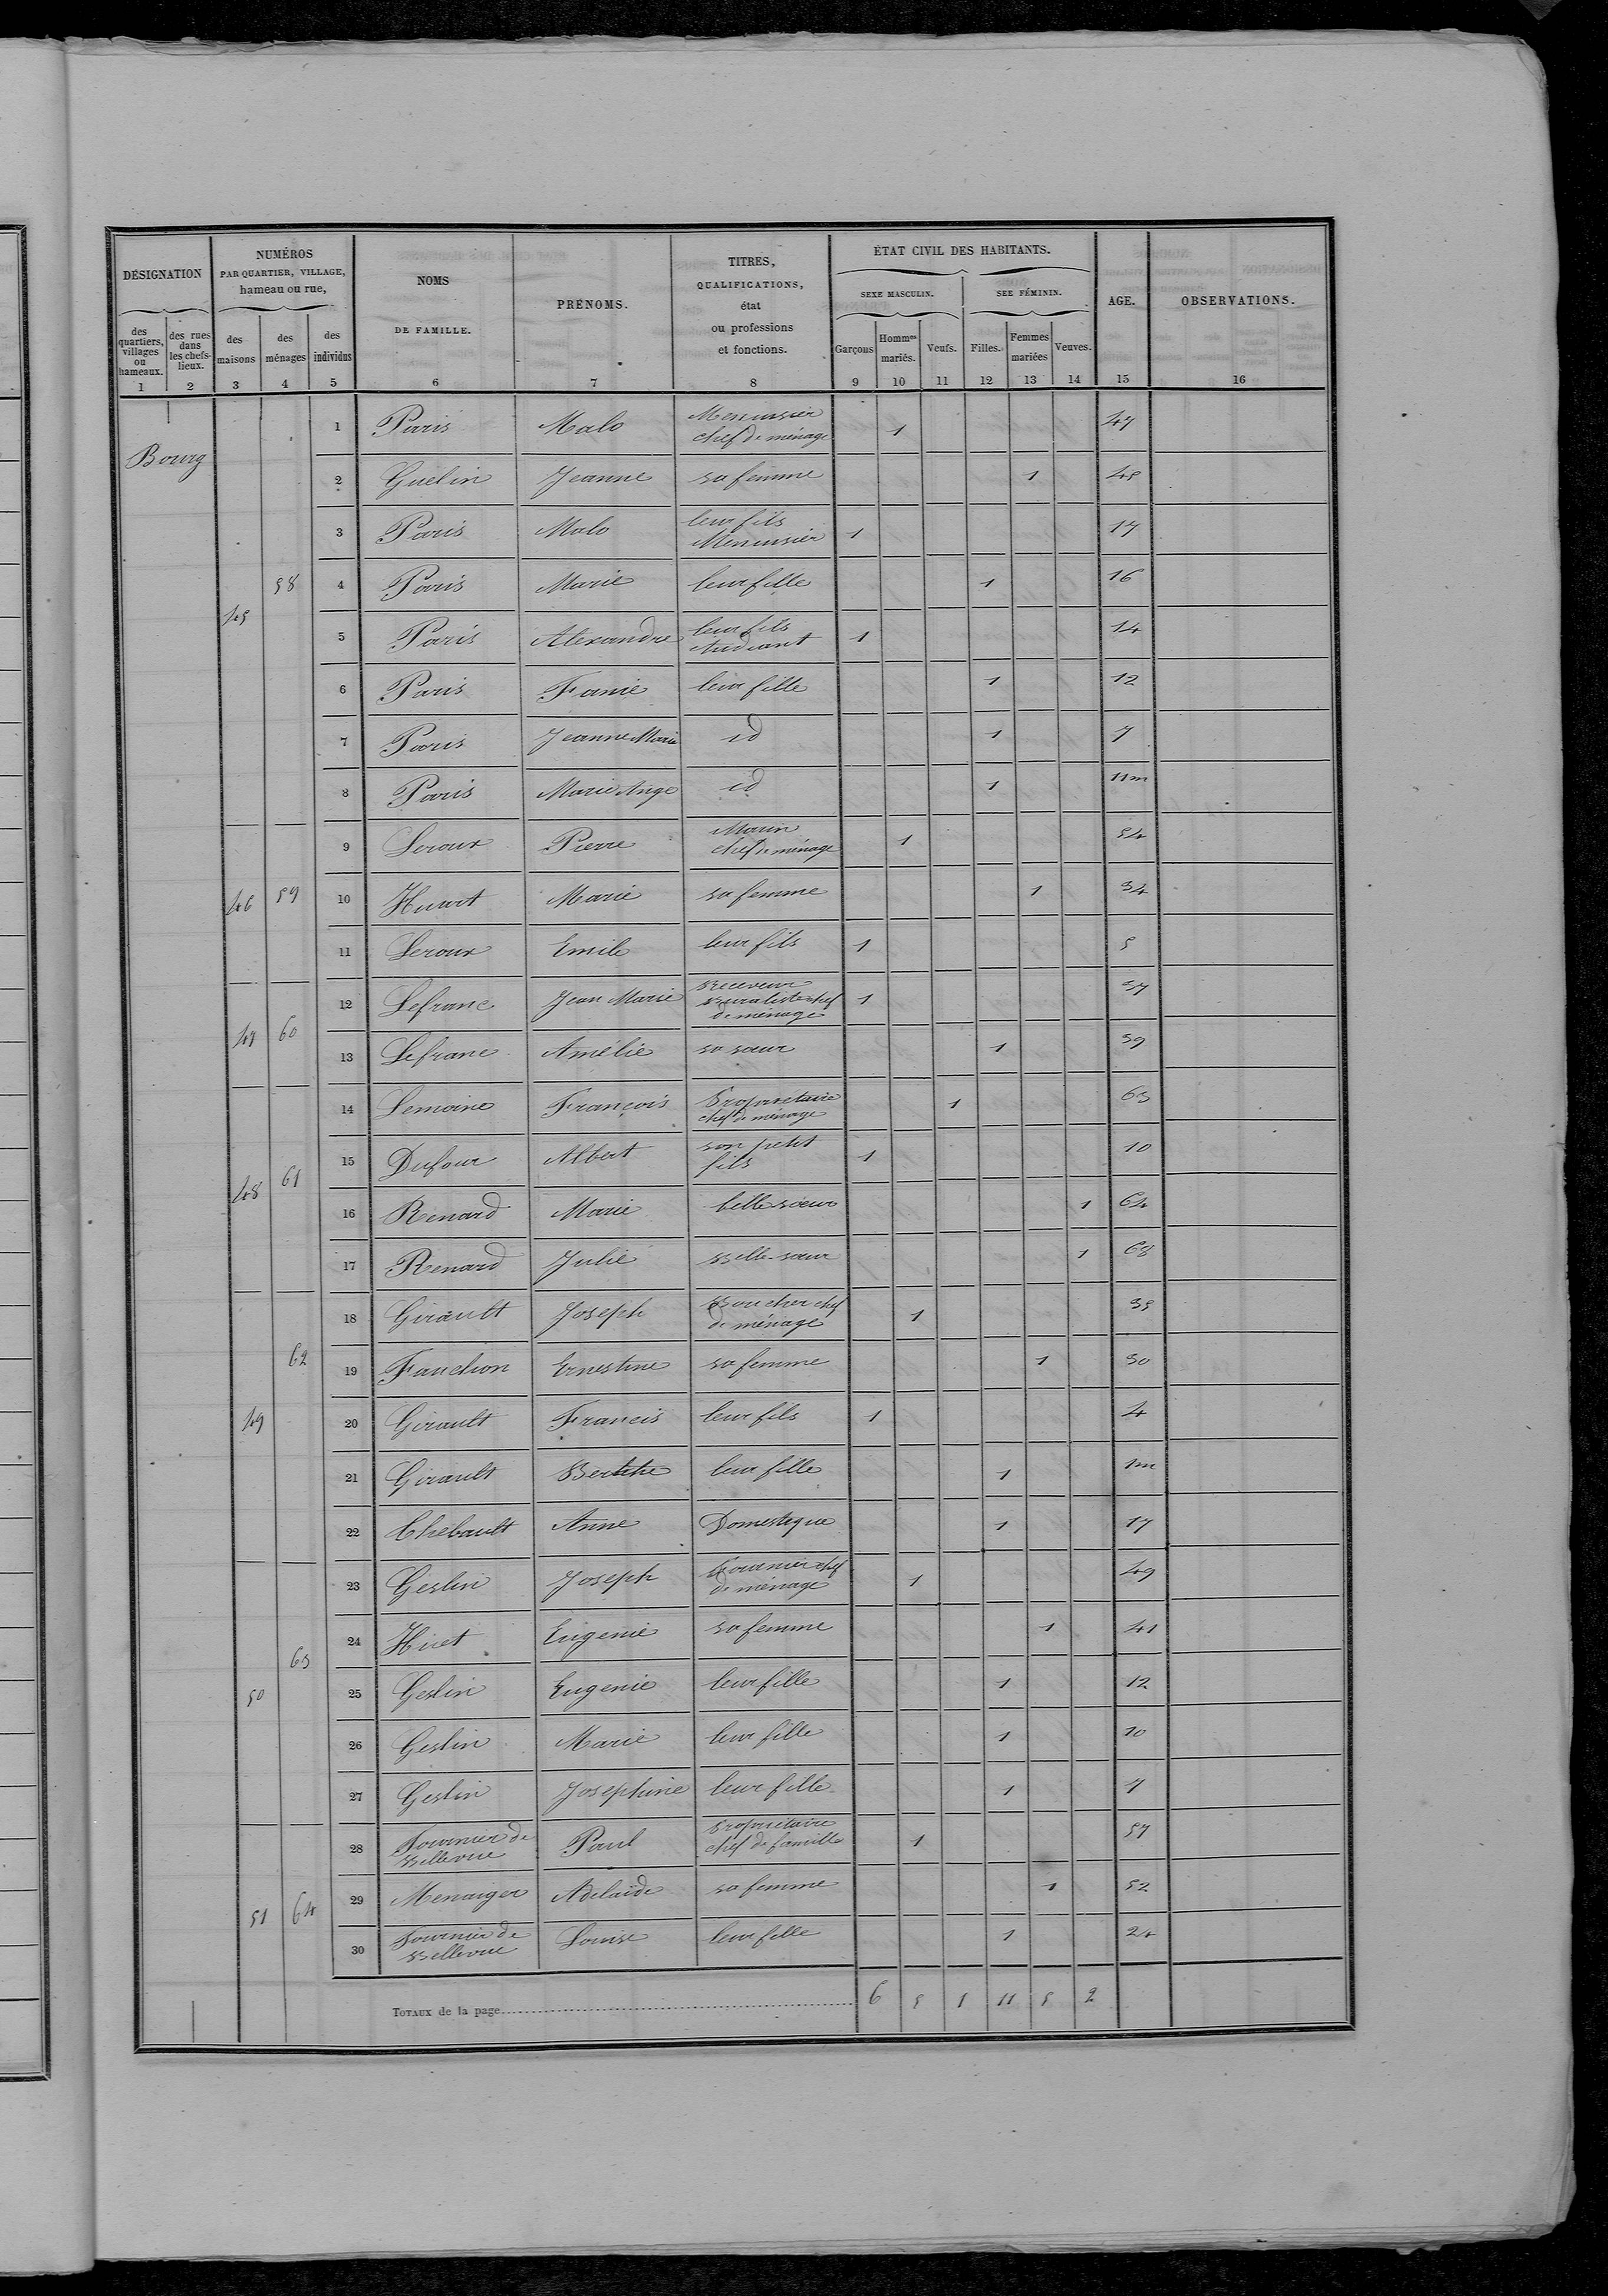 DÉSIGNATION
NUMÉROS
PAR QUARTIER, VILLAGE,
hameau ou rue,
NOMS
DE FAMILLE.
PRÉNOMS.
TITRES,
QUALIFICATIONS,
état
ou professions
et fonctions.
ÉTAT CIVIL DES HABITANTS.
SEXE MASCULIN.
SEE FÉMININ.
AGE.
OBSERVATIONS.
des quartiers, villages ou hameaux.
des rues dans les chefs-lieux.
des maisons
des ménages
des individus
Garçons
Hommes mariés.
Veufs.
Filles.
Femmes mariées
Veuves.
1 2 3 4 5 6 7 8 9 10 11 12 13 14 15 16
Bourg
45 58
1 Paris Malo Menuisier chef de ménage 1 47
2 Guélin Jeanne sa femme 1 45
3 Paris Malo leur fils Menuisier 1 17
4 Paris Marie leur fille 1 16
5 Paris Alexandre leur fils étudiant 1 14
6 Paris Fanie leur fille 1 12
7 Paris Jeanne Marie id 1 7
8 Paris Marie Ange id 1 11m
46 59
9 Leroux Pierre Marin chef de ménage 1 54
10 Huart Marie sa femme 1 34
11 Leroux Emile leur fils 1 5
47 60
12 Lefranc Jean Marie Receveur buraliste chef de ménage 1 57
13 Lefranc Amélie sa sœur 1 59
48 61
14 Lemoine François Propriétaire chef de ménage 1 63
15 Dufour Albert son petit fils 1 10
16 Renard Marie belle sœur 1 64
17 Renard Julie Belle-sœur 1 68
49 62
18 Girault Joseph Boucher chef de ménage 1 35
19 Fauchon Ernestine sa femme 1 30
20 Girault Francis leur fils 1 4
21 Girault Berthe leur fille 1 1m
22 Thébault Anne Domestique 1 17
50 63
23 Geslin Joseph chef de ménage 1 49
24 Huet Eugenie sa femme 1 41
25 Geslin Eugenie leur fille 1 12
26 Geslin Marie leur fille 1 10
27 Geslin Josephine leur fille 1 7
51 64
28 Fournier de Bellevue Paul Propriétaire chef de famille 1 57
29 Menaiger Adelaïde sa femme 1 52
30 Fournier de Bellevue Louise leur fille 1 24
TOTAUX de la page 6 5 1 11 5 2